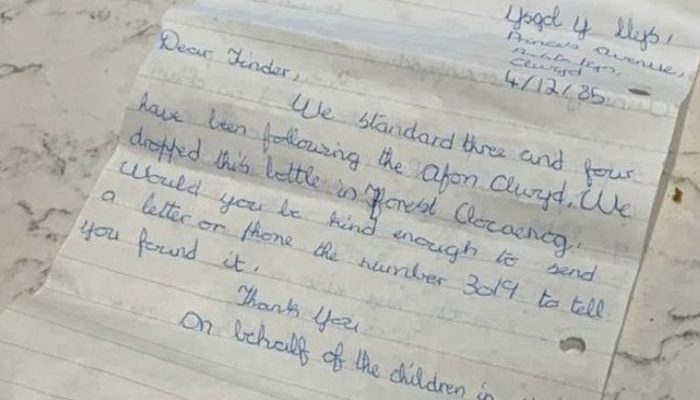 Ysgol y llys,
Princes avenue,
Clwyd
4/12/85
Dear Finder,
We standard three and four
have been following the afon Clwyd. We
dropped this bottle in Forest Clocaenog.
Would you be kind enough to send
a letter or phone the number 3019 to tell
you found it.
Thank you
On behalf of the children in